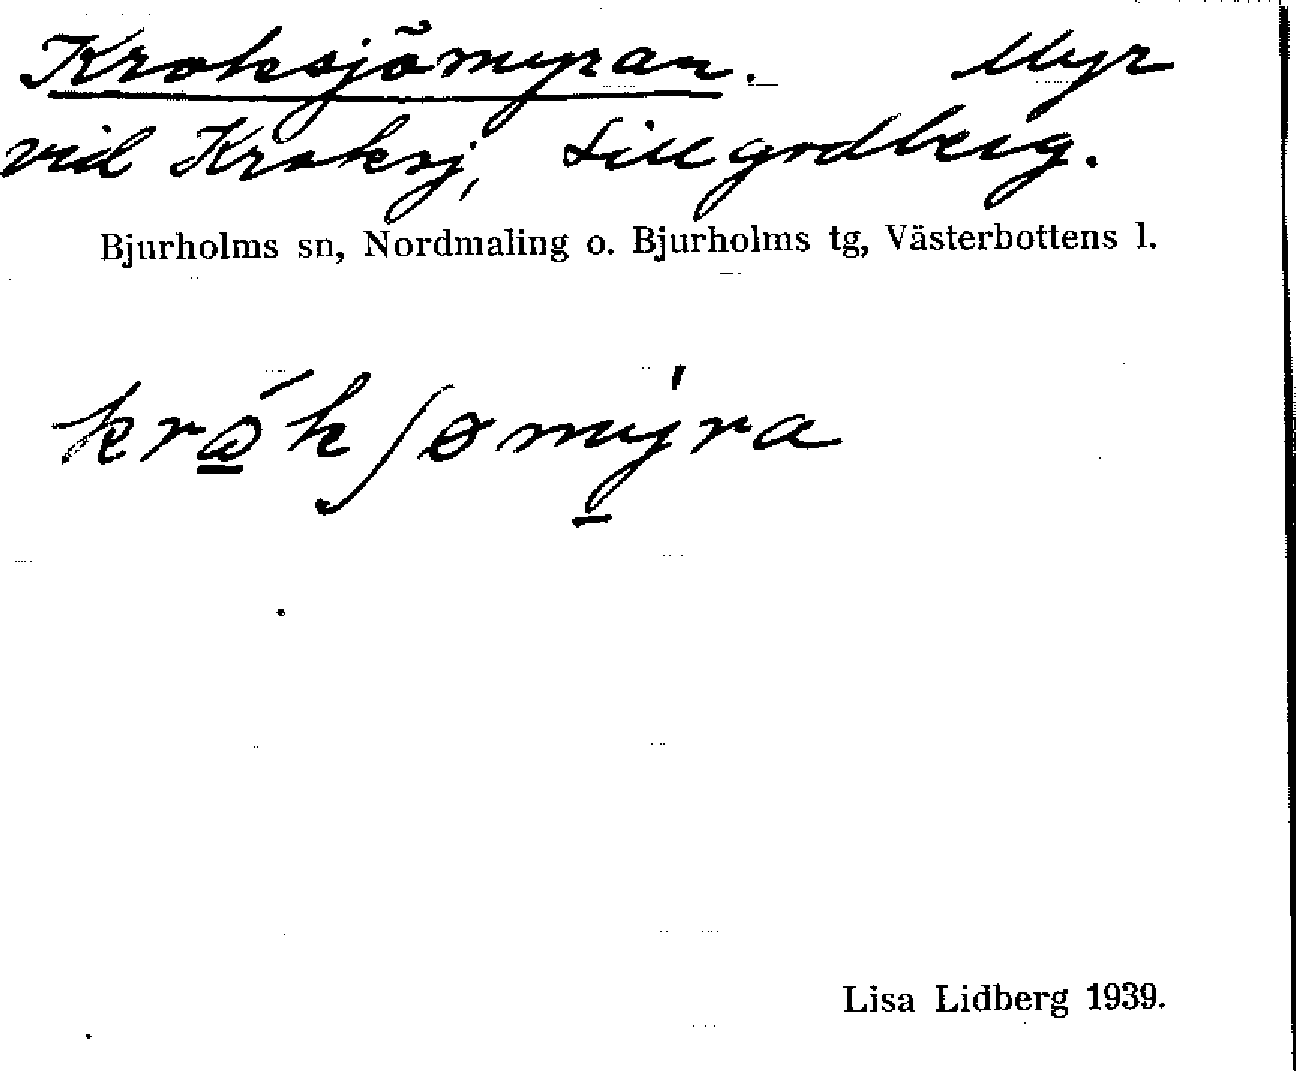 Kroksjömyran. Myr
vid Kroksj, Lillgodberg.
Bjurholms sn, Nordmaling o. Bjurholms tg, Västerbottens l.
Lisa Lidberg 1939.